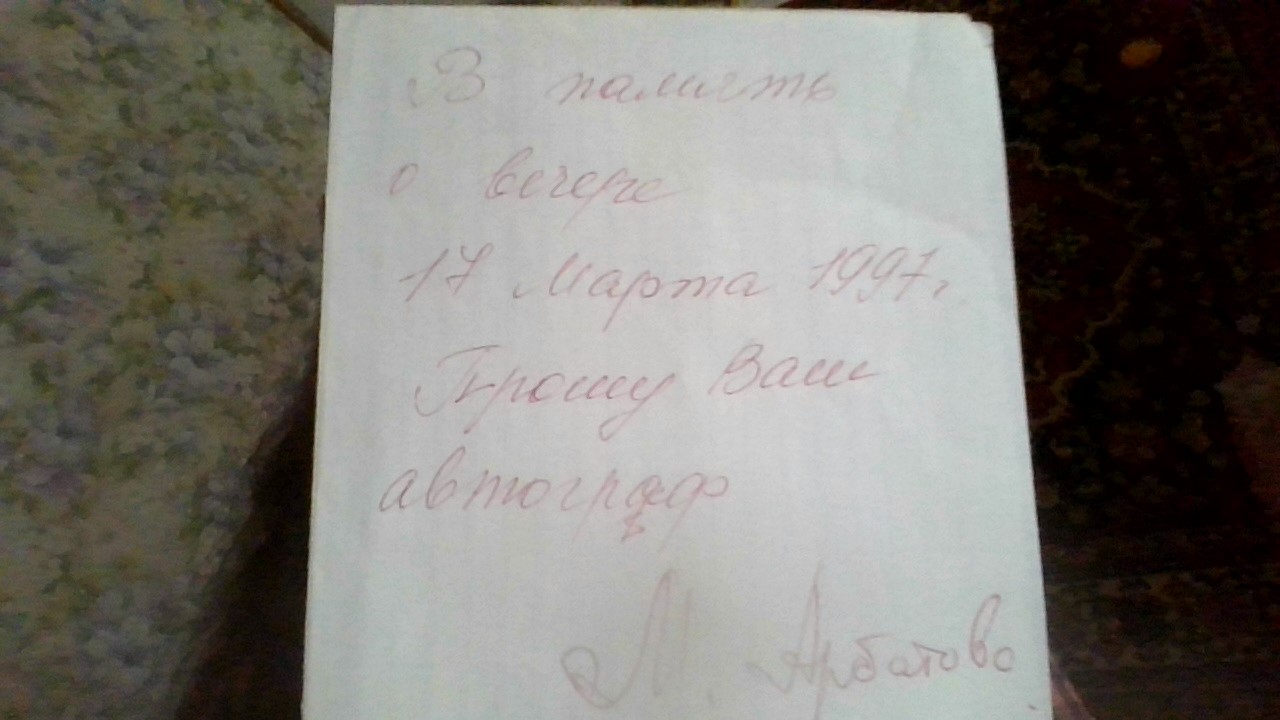 В память
о вечере
17 Марта 1997г.
Прошу Ваш
автограф
М. Арбатова